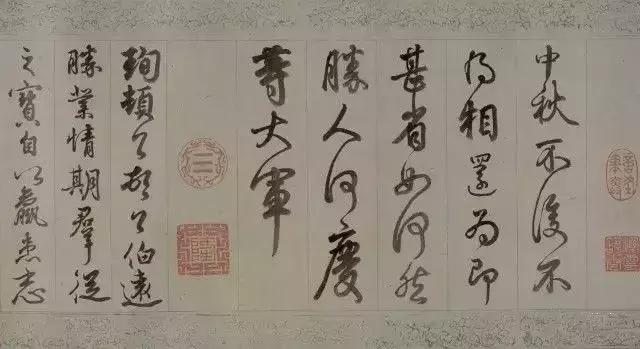 中秋不復不
得相還為即
甚省如何然
勝人何慶
等大軍
珣頓首頓首伯遠
勝業情期羣從
之寶自以羸患志